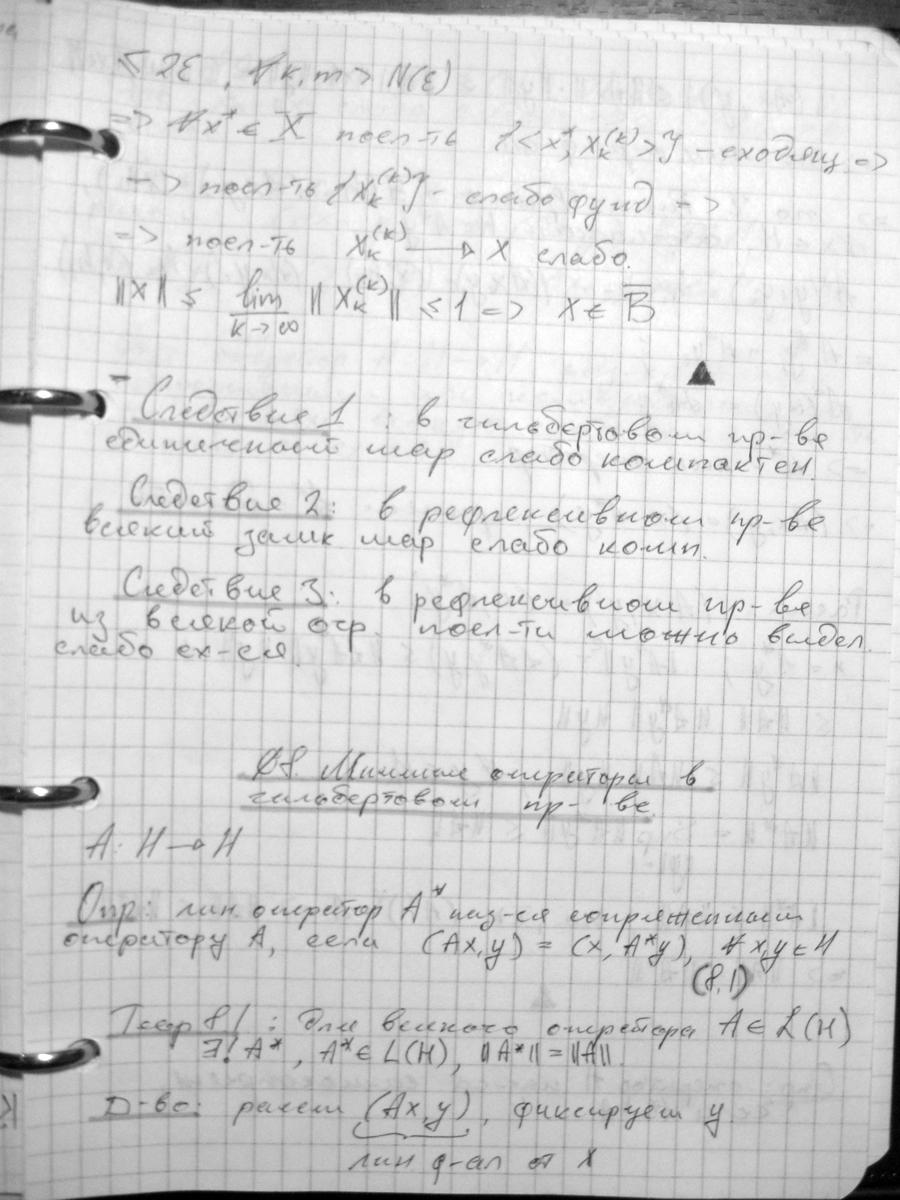 ≤ 2ε, ∀ k, m > N(ε)
=> ∀ x* ∈ X посл-ть {<x*, x_k^(k)>} - сходящ =>
=> посл-ть {x_k^(k)} - слабо фунд =>
=> посл-ть x_k^(k) → x слабо.
||x|| ≤ lim_{k→∞} ||x_k^(k)|| ≤ 1 => x ∈ B̅
▲
Следствие 1: в гильбертовом пр-ве
единичный шар слабо компактен.
Следствие 2: в рефлексивном пр-ве
всякий замк шар слабо комп.
Следствие 3: в рефлексивном пр-ве
из всякой огр. посл-ти можно выдел.
слабо сх-ся.
§8. Линейные операторы в
гильбертовом пр-ве
A: H → H
Опр: лин. оператор A* наз-ся сопряженным
оператору A, если (Ax,y) = (x, A*y), ∀ x,y ∈ H
(8,1)
Теор 8.1: для всякого оператора A ∈ L(H)
∃! A*, A* ∈ L(H), ||A*|| = ||A||.
Д-во: рассм (Ax,y), фиксируем y.
лин ф-ал от x